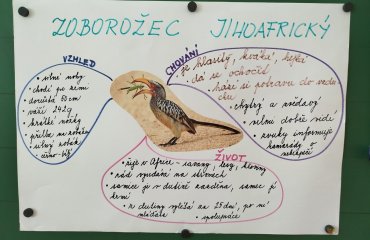 ZOBOROŽEC JIHOAFRICKÝ
VZHLED
• silné nohy
• chodí po zemi
• dorůstá 50 cm
• váží 242g
• krátké nožky
• přilba na zobáku
• silný zobák
černo-bílý
CHOVÁNÍ
• je hlasitý, kváká, kejhá
• dá se ochočit
• hází si potravu do vzdu
chu
• chytrý a zvědavý
• velmi dobře vidí
• zvuky informuje
kamarády o
nebezpečí
ŽIVOT
• žije v Africe - savany, lesy, stromy
• rád vysedává na stromech
• samice je v dutině zazděna, samec ji
krmí
• z dutiny vylézá za 25 dní, po ní
mláďata
• spolupráce